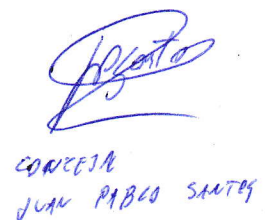 CONCEJAL
JUAN PABLO SANTOS